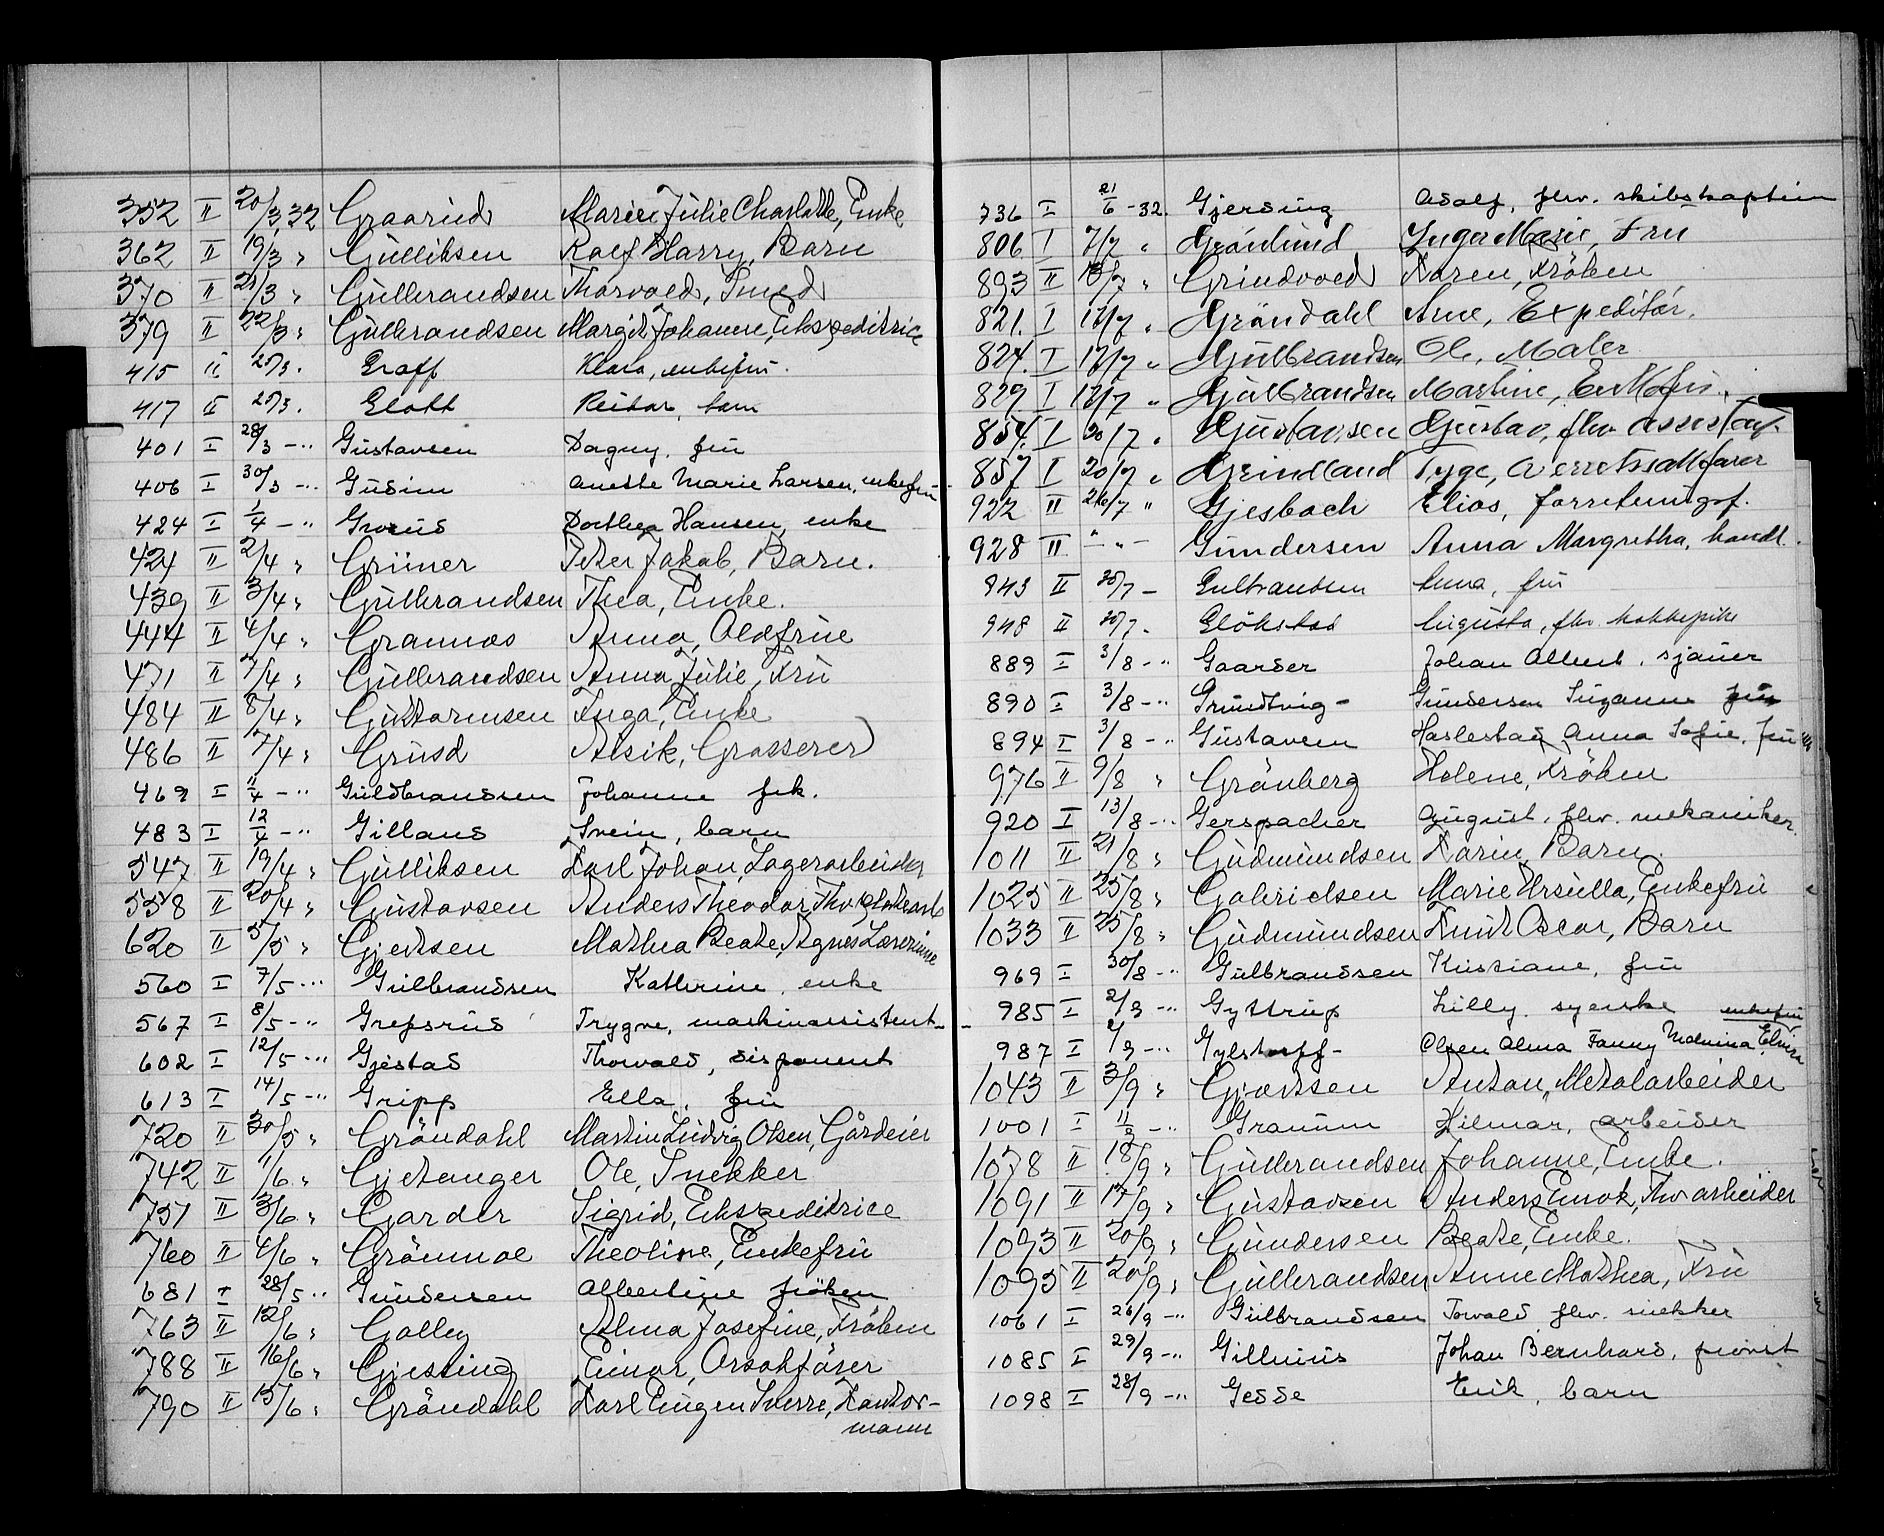 352 II 20/3 32 Graarud Marie Julie Charlotte, Enke
362 II 19/3 " Gulliksen Rolf Harry, Barn
370 II 21/3 " Gulbrandsen Thorvald, Smed
379 II 22/3 " Gulbrandsen Margit Johanne, Ekspeditrice
415 II 25/3. Graff Klara, enkefru.
417 II 25/3. Glott Reidar, barn
401 I 28/3 - " Gustavsen Dagny, fru
406 I 30/3 - " Gusim Anette Marie Larsen, enkefru
424 I 1/4 - " Dorthea Hansen, enke
424 II 2/4 " Grüner Peter Jakob, Barn.
439 II 3/4 " Gulbrandsen Thea, Enke.
444 II 4/4 " Grannæs Anna, Oldfrue
471 II 7/4 " Gulbrandsen Anna Julie, Fru
484 II 8/4 " Inga, Enke
486 II 7/4 " Grusd Alsik, Grosserer
469 I 11/4 - " Guldbrandsen Johanne frk.
483 I 12/4 - " Gillans Svein, barn
547 II 19/4 " Gulliksen Karl Johan, Lagerarbeider
558 II 20/4 " Gustavsen Anders Theodor,
620 II 5/5 " Gjertsen Mathea Beate, Agnes Lærerinne
560 I 7/5 - " Gulbrandsen Kathrine, enke
567 I 8/5 - " Grepsrud Trygve, maskinassistent
602 I 12/5 - " Gjestad Thorvald, disponent
613 I 14/5 - " Gripp Ella, fru
720 II 30/5 " Gröndahl Martin Ludvig Olsen, Gårdeier
742 II 1/6 " Gjetanger Ole, Snekker
757 II 3/6 " Garder Sigrid, Ekspeditrice
760 II 6/6 " Grönmoe Theoline, Enkefru
681 I 28/5 " Gundersen Albertine fröken
763 II 12/6 " Golley Alma Josefine, Fröken
788 II 16/6 " Gjesting Einar,
790 II 15/6 " Gröndahl Karl Eugen Sverre, Kontor-
mann
736 I 21/6 - 32. Gjersing Adolf, fhv. skibskaptein
806 I 7/7 " Grönlund Inga Marie, Fru
893 II 18/7 " Grindvold Karen, Fröken
821. I 13/7 " Gröndahl Arne, Expeditör.
824. I 13/7 " Gulbrandsen Ole, Maler
829 I 13/7 " Gulbrandsen Martine, Enkefru.
854. I 20/7 " Gustavsen Gustav, fhv. assistent.
857 I 20/7 " Grindland Tyge, Overretssakfører
922 II 26/7 " Gjesbach Elias, forretningsf.
928 II - " - Gundersen Anna Margretha, handl.
943 II 30/7 - Gulbrandsen Anna, fru
948 II 30/7 - Glökstad Augusta, fhv. kokkepike
889 I 3/8 - " Gaarder Johan Albert, sjauer
890 I 3/8 - " Grundtvig - Gundersen Suzanne fru
894 I 3/8 - " Gustavsen Harlestad Anna Sofie, fru
976 II 9/8 " Grönberg Helene, Fröken
920 I 13/8 - " Gerspacher August, fhv. mekaniker.
1011 II 21/8 " Gudmundsen Karin, Barn.
1025 II 25/8 " Gabrielsen Marie Ursulla, Enkefru
1033 II 25/8 " Gudmundsen Knut Oscar, Barn
969 I 30/8 - " Gulbrandsen Kristiane, fru
985 I 2/9 - " Gyttrup Lilly, syerske
987 I 2/9 - " Gylstorff - Olsen Alma Fanny Malvina Elvira enkefru
1043 II 3/9 " Gjertsen Anton, Metalarbeider
1001 I 11/9 - " Granum Hilmar, arbeider
1078 II 18/9 " Gulbrandsen Johanne, Enke.
1091 II 17/9 " Gustavsen Anders Enok, Fhv. arbeider
1093 II 20/9 " Gundersen Beate, Enke.
1095 II 20/9 " Gulbrandsen Anne Mathea, Fru
1061 I 26/9 - " Gulbrandsen Torvald fhv. snekker
1085 I 29/9 - " Gillnius Johan Bernhard,
1098 I 28/9 - " Gedde Erik, barn